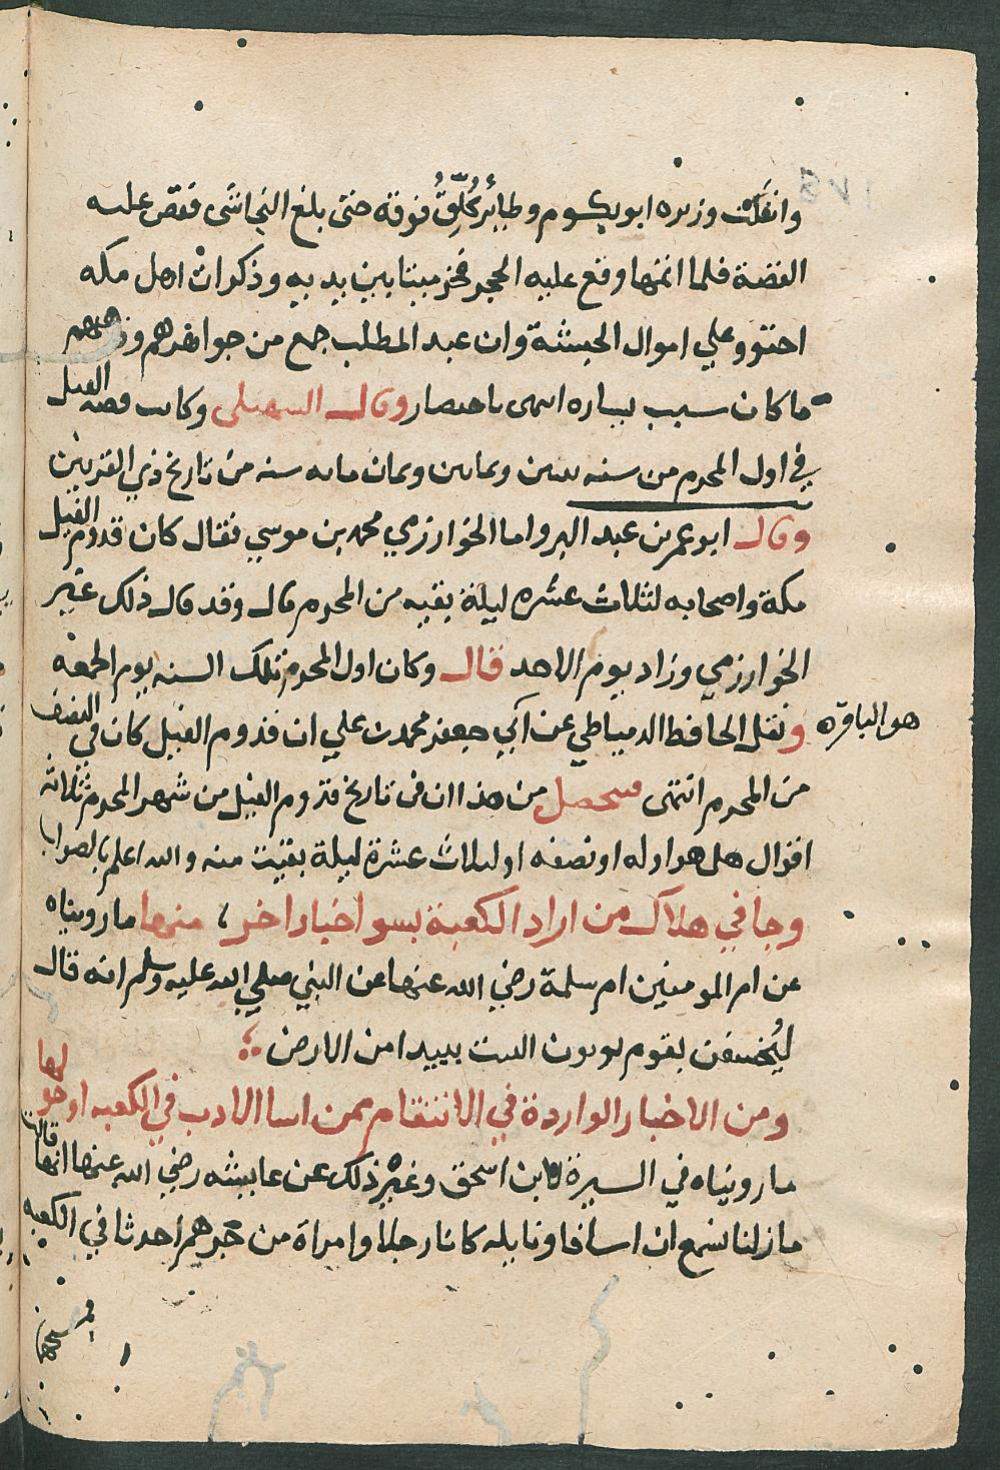 وانفلت وزيره ابو يكسوم وطائر يُحلِّقُ فوقه حتى بلغ النجاشى فقص عليه
القصة فلما اتمها وقع عليه الحجر فخر ميتا بين يديه وذكر ان اهل مكه
احتوو علي اموال الحبشة وان عبد المطلب جمع من جواهرهم وذهبهم
ما كان سبب يساره انتهى باختصار وقال السهيلى وكانت قصة الفيل
في اول المحرم من سنه ثنتين وثمانين وثمان مايه سنه من تاريخ ذي القرنين
وقال ابو عمر بن عبد البر واما الخوارزمي محمد بن موسي فقال كان قدوم الفيل
مكة واصحابه لثلاث عشره ليلة بقيه من المحرم قال وقد قال ذلك غير
الخوارزمي وزاد يوم الاحد قال وكان اول المحرم تلك السنه يوم الجمعه
ونقل الحافظ الدمياطي عن ابي جعفر محمد بن علي ان قدوم الفيل كان في النصف
هو الباقر
من المحرم انتهى فتحصل من هذا ان فى تاريخ قدوم الفيل من شهر المحرم ثلاثة
اقوال هل هو اوله او نصفه او لثلاث عشرة ليلة بقيت منه والله اعلم بالصواب
وجا في هلاك من اراد الكعبة بسو اخبار اخر، منها ما رويناه
عن ام المومنين ام سلمة رضي الله عنها عن النبي صلي الله عليه وسلم انه قال
ليُخسفن بقوم يومون البيت ببيدا من الارض
ومن الاخبار الواردة في الانتقام ممن اسا الادب في الكعبه او حولها
ما رويناه في السيرة لابن اسحق وغير ذلك عن عايشه رضي الله عنها انها قالت
ما زلنا نسمع ان اسافا ونايله كانا رجلا وامراة من جرهم احدثا في الكعبه
فمسخها